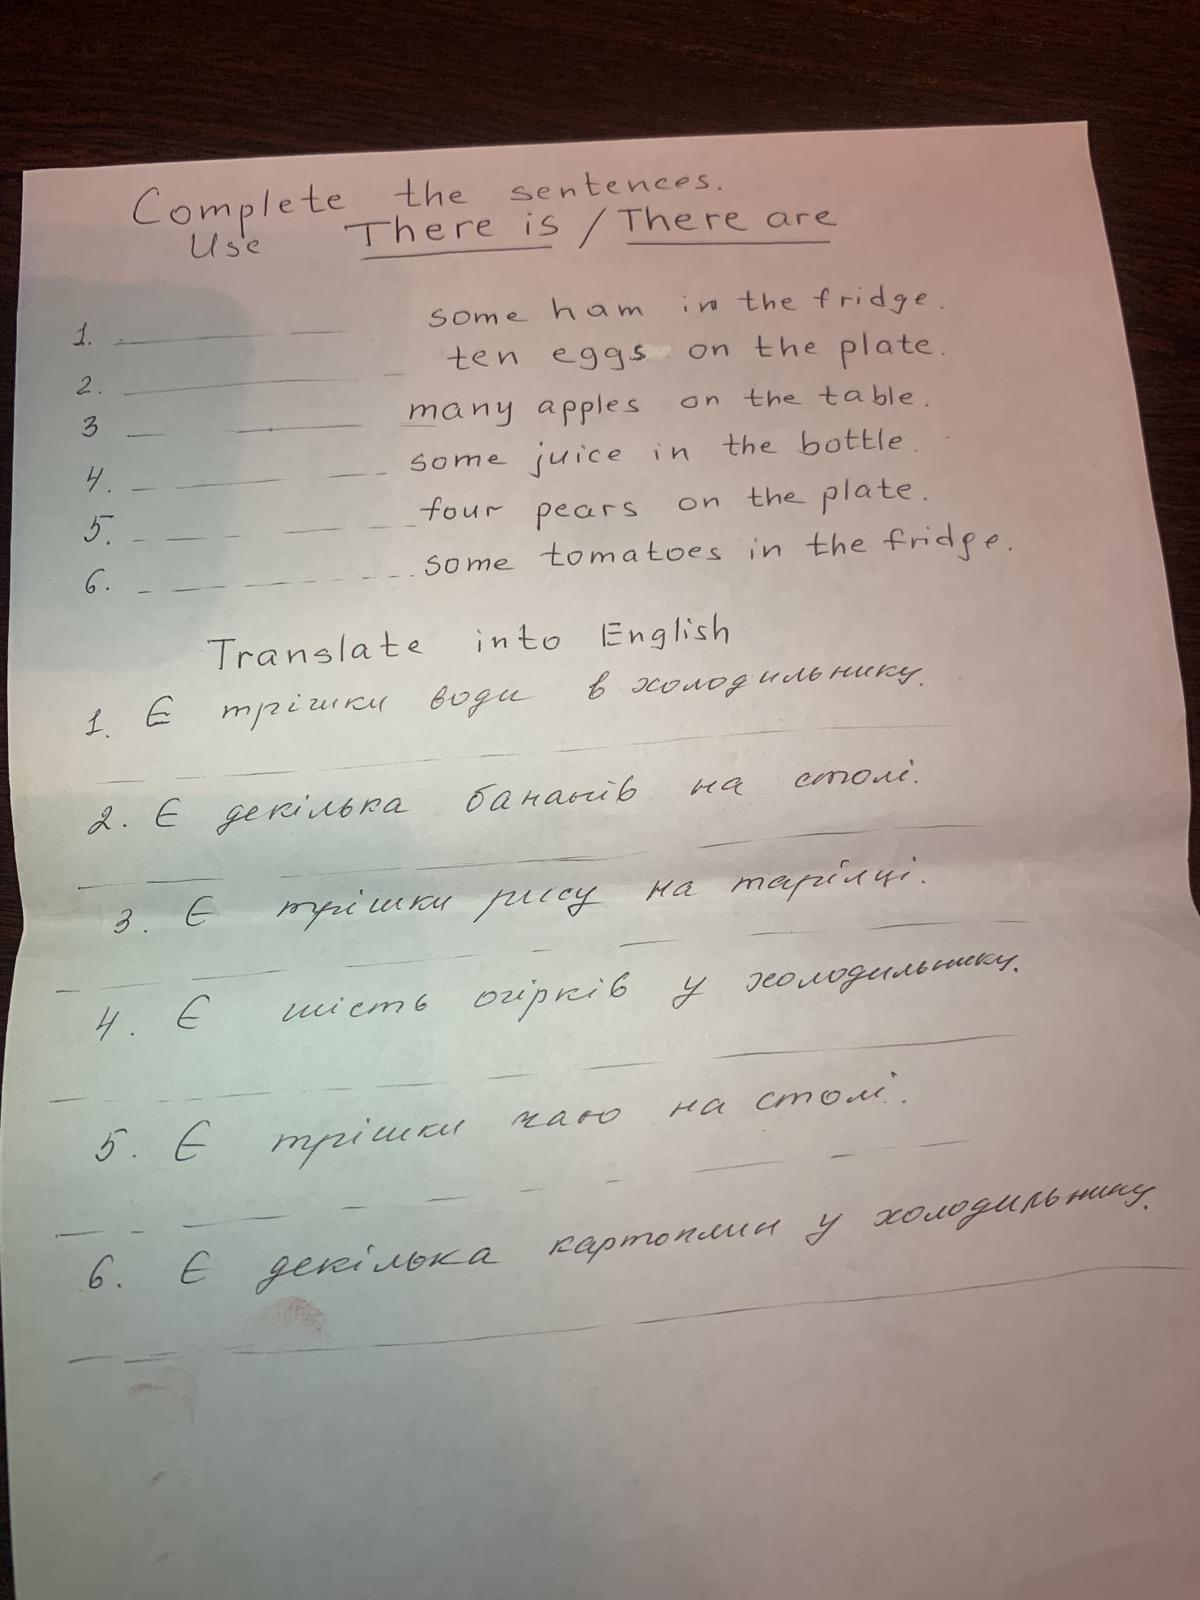 Complete the sentences.
Use There is / There are
1. some ham in the fridge.
2. ten eggs on the plate.
3 many apples on the table.
4. some juice in the bottle.
5. four pears on the plate.
6. some tomatoes in the fridge.
Translate into English
1. Є трішки води в холодильнику.
2. Є декілька бананів на столі.
3. Є трішки рису на тарілці.
4. Є шість огірків у холодильнику.
5. Є трішки чаю на столі.
6. Є декілька картоплин у холодильнику.